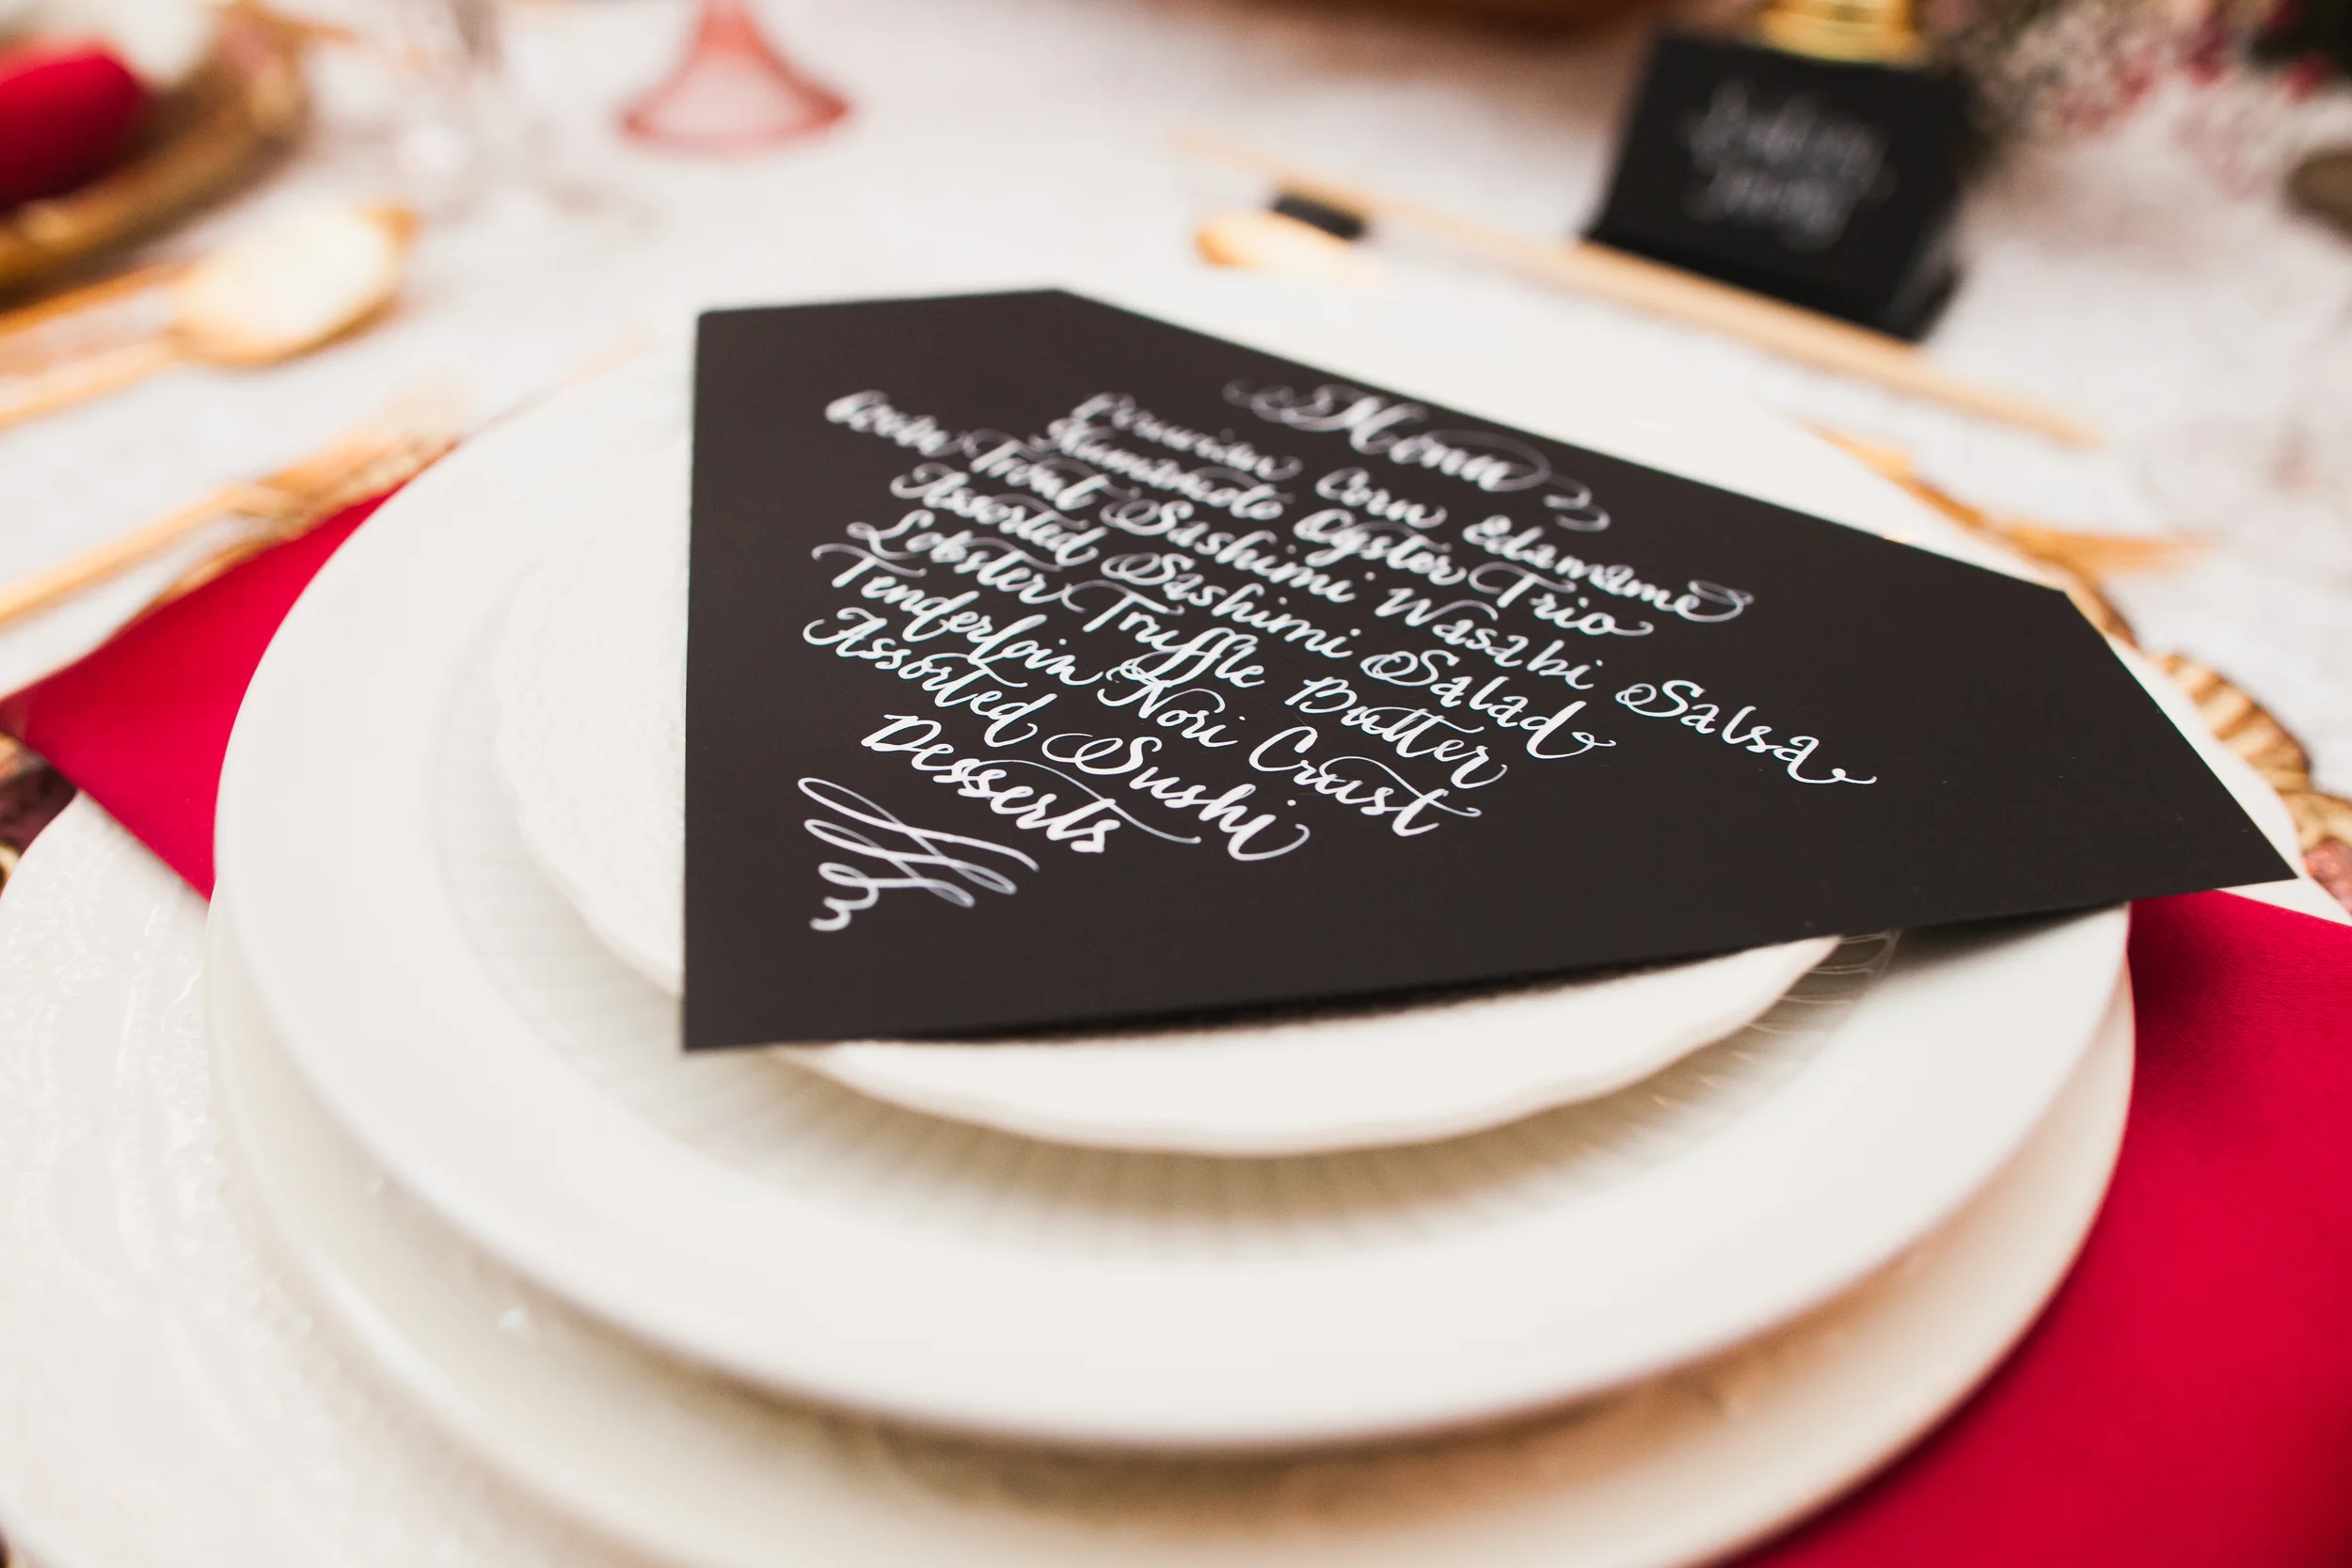 Menu
Peruvian Corn Edamame
Kumamoto Oyster Trio
Ocean Trout Sashimi Wasabi Salsa
Assorted Sashimi Salad
Lobster Truffle Butter
Tenderloin Nori Crust
Assorted Sushi
Desserts